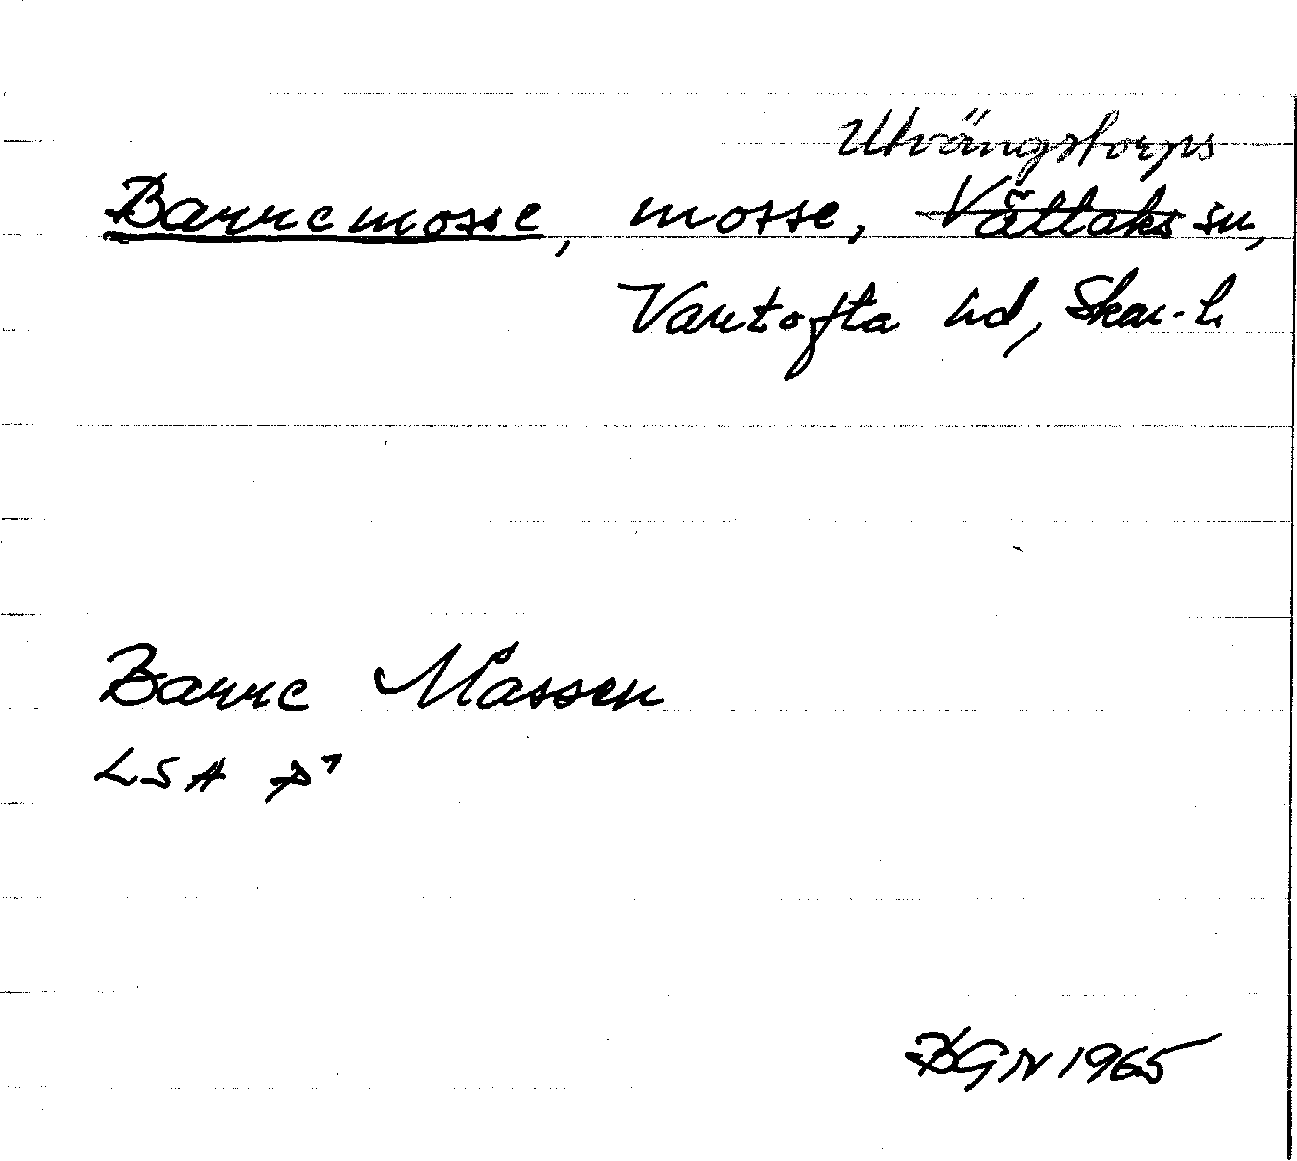 Utvängstorps
Barremosse, mosse, Vättaks sn,
Vartofta hd, Skar. l.
Barre Måssen
LSA
BGN 1965